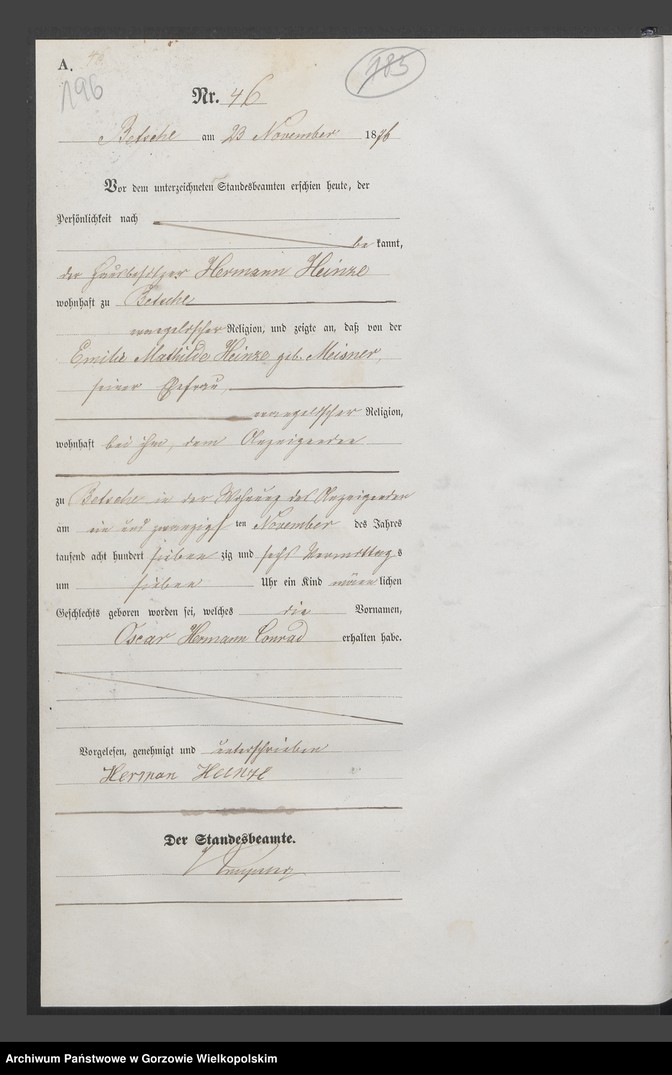 A.
196
185
Nr. 46
Betsche am 23 November 1876
Vor dem unterzeichneten Standesbeamten erschien heute, der
Persönlichkeit nach
bekannt,
der Hausbesitzer Hermann Heinze
wohnhaft zu Betsche
evangelischer Religion, und zeigte an, daß von der
Emilie Mathilde Heinze geb. Meisner,
seiner Ehefrau,
evangelischer Religion,
wohnhaft bei ihm, dem Anzeigenden
zu Betsche in der Wohnung des Anzeigenden
am ein und zwanzigsten November des Jahres
tausend acht hundert siebenzig und sechs Vormittags
um sieben Uhr ein Kind männlichen
Geschlechts geboren worden sei, welches die Vornamen,
Oscar Hermann Conrad erhalten habe.
Vorgelesen, genehmigt und unterschrieben
Herman Heinze
Der Standesbeamte.
Archiwum Państwowe w Gorzowie Wielkopolskim